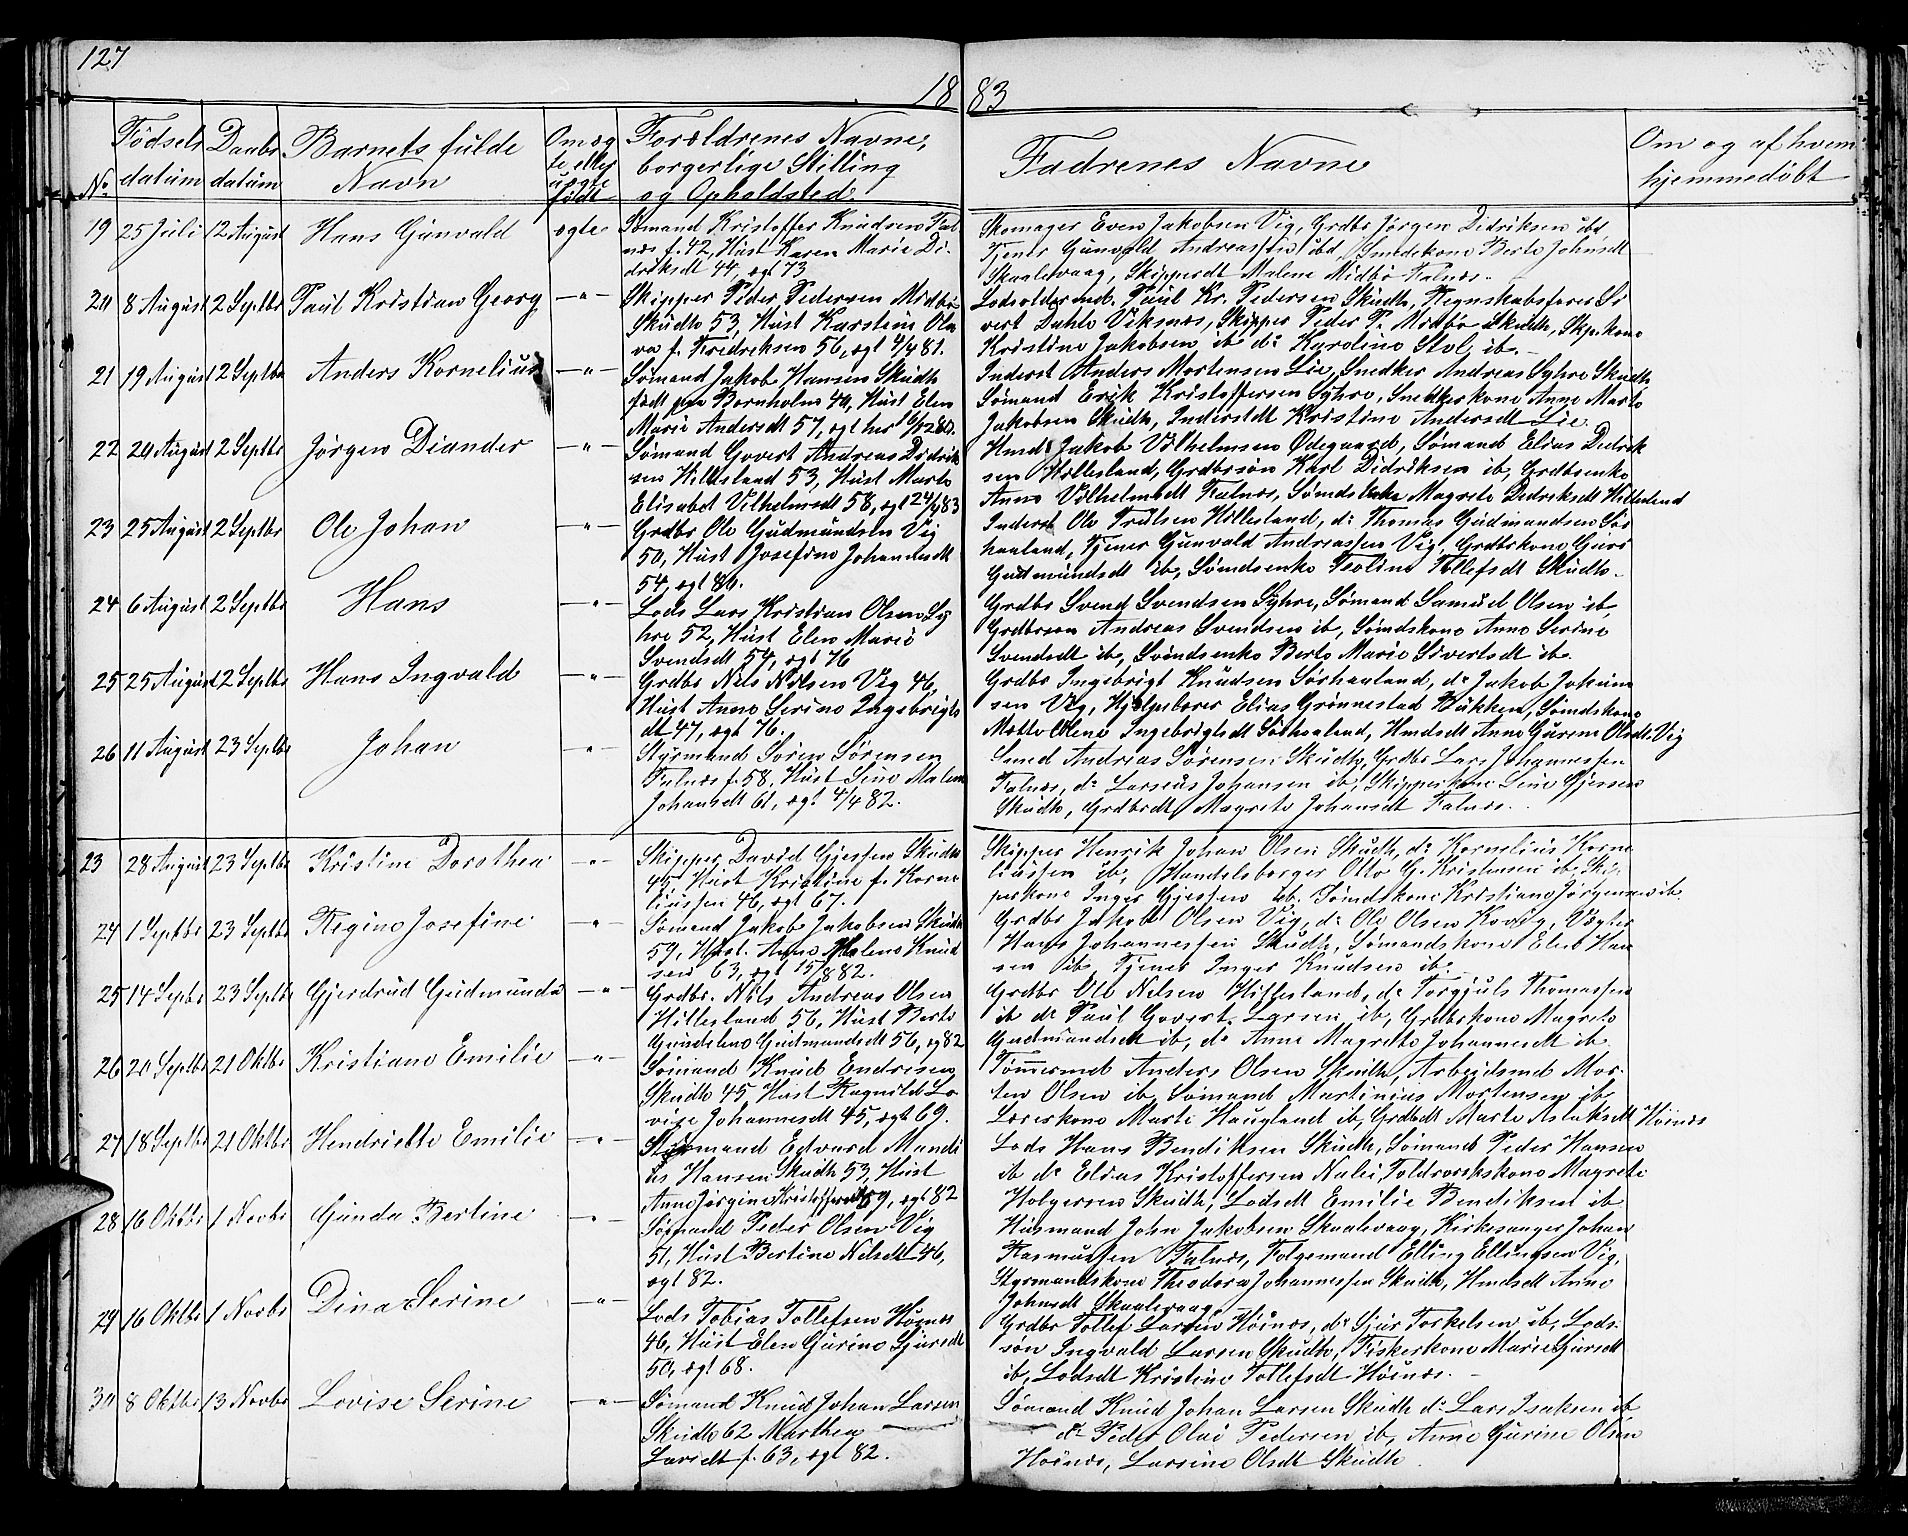 127
18 83
No
Fødsels
datum
Daabs
datum
Barnets fulde
Navn
Om æg
te eller
uægte
født
Forældrenes Navne,
borgerlige Stilling
og Opholdsted.
Fadrenes Navne
Om og af hvem
hjemmedøbt
19 25 Juli 12 August Hans Gunvald ægte
Sømand Kristoffer Knudsen Fal
næs f. 42, Hust Karen Marie Di-
driksdt 44, ægt 73
Skomager Even Jakobsen Vig, Grdbr Jørgen Didriksen ibd
Tjener Gunvald Andreassen ibd, Smedekone Berte Johnsdt
Skaalevaag, Skipperdt Malene Midbø Falnæs.
20 8 August 2 Septbr Paul Kristian Georg -"-
Skipper Peder Pedersen Midbø
Skudh 53, Hust Karstine Ola
va f. Fredriksen 56, ægt 4/4 81.
Lodsoldermd. Paul Kr. Pedersen Skudh, Regnskabsfører Si
vert Dahle Viksnæs, Skipper Peder P. Midbø Skudh, Skip.kone
Kristine Jakobsen ib d: Karoline Stol ib.
21 19 August 2 Septbr Anders Kornelius -"-
Sømand Jakob Hansen Skudh
født paa Bornholm 40, Hust Elen
Marie Andersdt 57, ægt her
Inderst Anders Mortensen Lie, Snedker Andreas Syhre Skudh
Sømand Erik Kristoffersen Syhre, Snedkerkone Anne Marte
Jakobsen Skudh, Inderstdt Kristine Andersdt Lie.
22 20 August 2 Septbr Jørgen Diander -"-
Sømand Govert Andreas Didrik
sen Hillesland 53, Hust Marte
Elisabet Vilhelmsdt 58, ægt 24/4 83
Hmd Jakob Vilhelmsen Ødegaard, Sømand Elias Didrik
sen Hillesland, Grdbrsøn Karl Didriksen ib, Grdbrenke
Anne Vilhelmsdt Falnæs, Sømdsenke Magrete Didriksdt Hillesland
23 25 August 2 Septbr Ole Johan -"-
Grdbr Ole Gudmundsen Vig
50, Hust Josefine Johannesdt
54, ægt 80.
Inderst Ole Trulsen Hillesland, d: Thomas Gudmandsen Sør
haaland, Tjener Gunvald Andreassen Vig, Grdbrkone Guri
Gudmundsdt ib, Sømdsenke Tsoline Tollefsdt Skudh.
24 6 August 2 Septbr Hans -"-
Lods Lars Kristian Olsen Sy
hre 52, Hust Elen Marie
Svendsdt 54, ægt 76
Grdbr Svend Svendsen Syhre, Sømand Samuel Olsen ib,
Grdbrsøn Andreas Svendsen ib, Sømdskone Anne Serine
Svendsdt ib, Sømdsenke Berte Marie Sivertsdt ib.
25 25 August 2 Septbr Hans Ingvald -"-
Grdbr Nils Nilsen Vig 46,
Hust Anne Serine Ingebrigts
dt 47, ægt 76.
Grdbr Ingebrigt Knudsen Sørhaaland, d: Jakob Jokum
sen Vig, Hjelpelærer Elias Grønnestad Bukken, Sømdskone
Mette Olene Ingebrigtsdt Sørhaaland, Hmdsdt Anne Gurine Olsdt Vig
26 11 August 23 Septbr Johan -"-
Styrmand Søren Sørensen
Falnæs f. 58, Hust Sine Malene
Johansdt 61, ægt 4/4 82.
Smed Andreas Sørensen Skudh, Grdbr Lars Johannessen
Falnæs, d: Larsius Johansen ib, Skipperkone Sine Gjessen
Skudh, Grdbrdt Magrete Johansdt Falnæs.
23 28 August 23 Septbr Kristine Dorothea -"-
Skipper David Gjessen Skudh
45 Hust Kristine f. Korne
liussen 46, ægt 67.
Skipper Henrik Johan Olsen Skudh, d: Kornelius Korne
liussen ib, Handelsborger Otto G. Kristensen ib, Skip
perkone Inger Gjessen ib. Sømdskone Kristiane Jørgensen ib.
24 1 Septbr 23 Septbr Regine Josefine -"-
Sømand Jakob Jakobsen Skudh
59, Hust. Anne Malene Knud
sen 63, ægt 15/8 82.
Grdbr Jakob Olsen Vig, d: Ole Olsen Kovig, Vægter
Hans Johannessen Skudh, Sømandskone Elen Han
sen ib Tjener Inger Knudsen ib.
25 14 Septbr 23 Septbr Gjerdrud Gudmunda -"-
Grdbr. Nils Andreas Olsen
Hillesland 56, Hust Berte
Gundelene Gudmundsdt 56, æg 82
Grdbr Ole Nilsen Hillesland, d: Torgjuls Thomassen
ib d: Paul Govert Larsen ib, Grdbrkone Magrete
Gudmundsdt ib, d: Anne Magrete Johannesdt ib.
26 20 Septbr 21 Oktbr Kristiane Emilie -"-
Sømand Knud Endresen
Skudh 45 Hust Ragnild Lo
vise Johannesdt 45, ægt 69.
Tømermd Anders Olsen Skudh, Arbeidsmd Mor-
ten Olsen ib, Sømand Martinius Mortensen ib,
Lærerkone Marte Haugland ib, Grdbrdt Marte Aslaksdt Høines
27 18 Septbr 21 Oktbr Hendriette Emilie -"-
Styrmand Edvard Mandi
us Hansen Skudh 53, Hust
Anne Jørgine Kristoffersdt 59, ægt 82
Lods Hans Bendiksen Skudh, Sømand Peder Hansen
ib d: Elias Kristoffersen Nalei, Toldroerskone Magrete
Holgersen Skudh, Lodsdt Emilie Bendiksen ib
28 16 Oktbr 1 Novbr Gunda Bertine -"-
Sømand Peder Olsen Vig
51, Hust Bertine Nilsdt 46,
ægt 82.
Husmand John Jakobsen Skaalevaag, Kirkesanger Johan
Rasmussen Falnæs, Folgemand Elling Ellingsen Vig,
Styrmandskone Theodora Johannessen Skudh, Hmdsdt Anne
Johnsdt Skaalevaag.
29 16 Oktbr 1 Novbr Dina Serine -"-
Lods Tobias Tollefsen Høines
46, Hust Elen Gurine Sjursdt
50, ægt 68.
Grdbr Tollef Larsen Høines, d: Sjur Torkelsen ib, Lods-
søn Ingvald Larsen Skudh, Fiskerkone Marie Sjursdt
ib, Lodsdt Kristine Tollefsdt Høines.
30 8 Oktbr 13 Novbr Lovise Serine -"-
Sømand Knud Johan Larsen
Skudh 62 Marthea
Larsdt f. 63, ægt 82.
Sømand Knud Johan Larsen Skudh d: Lars Isaksen ib
d: Peder Olai Pedersen ib, Anne Gurine Olsen
Høines, Larsine Olsdt Skudh.